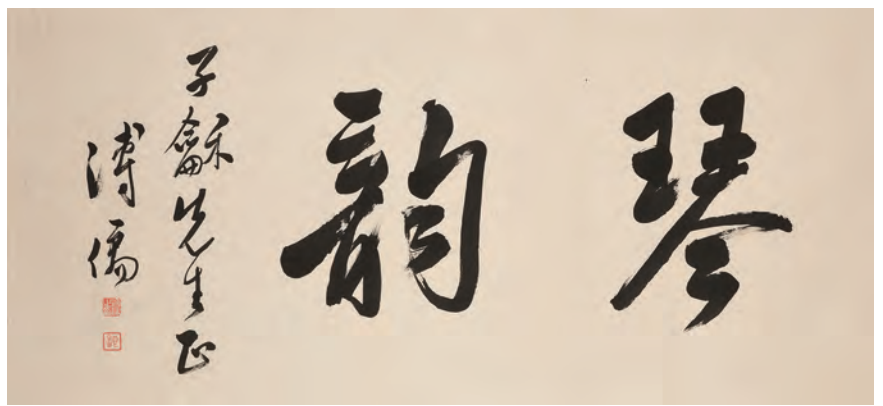 琴韵
子龢先生正
溥儒